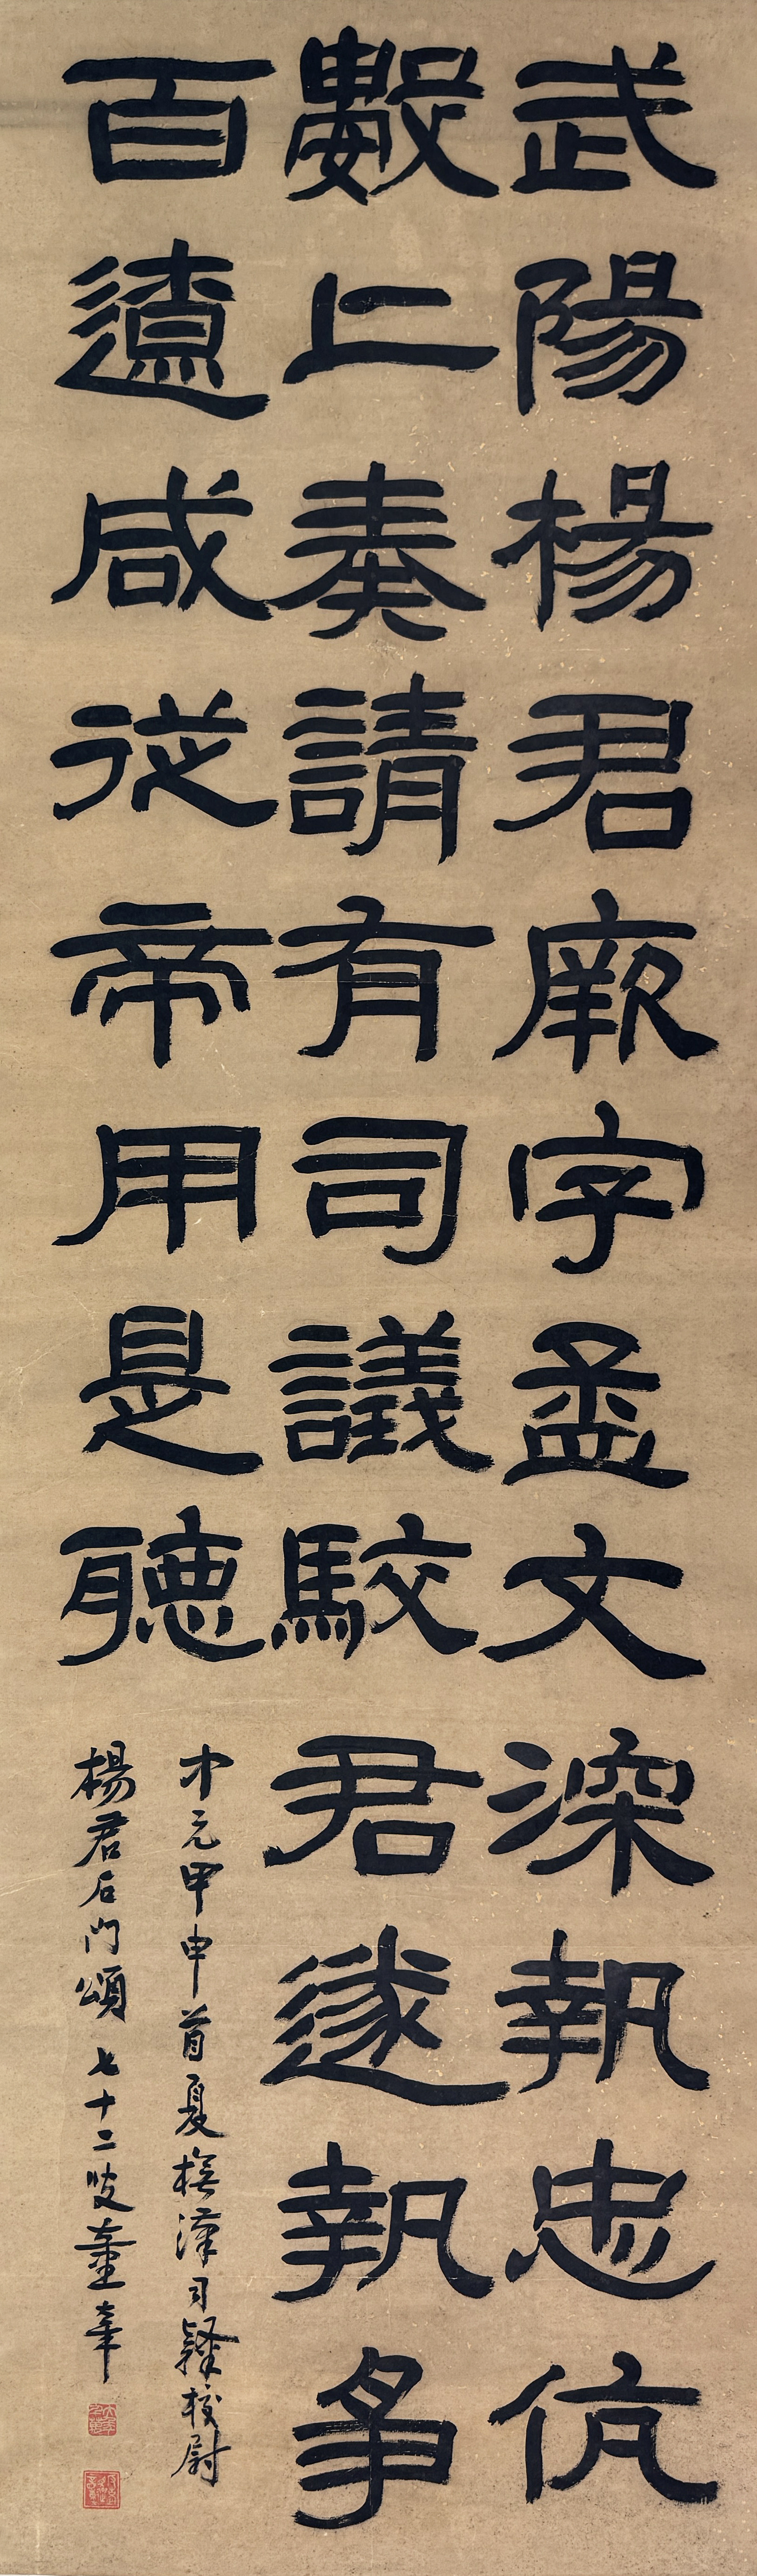 武陽楊君厥字孟文深執忠伉
數上奏請有司議駮君遂執爭
百遼咸從帝用是聽
中元甲申首夏橅漢司隸校尉
楊君石門頌 七十二叟童大年